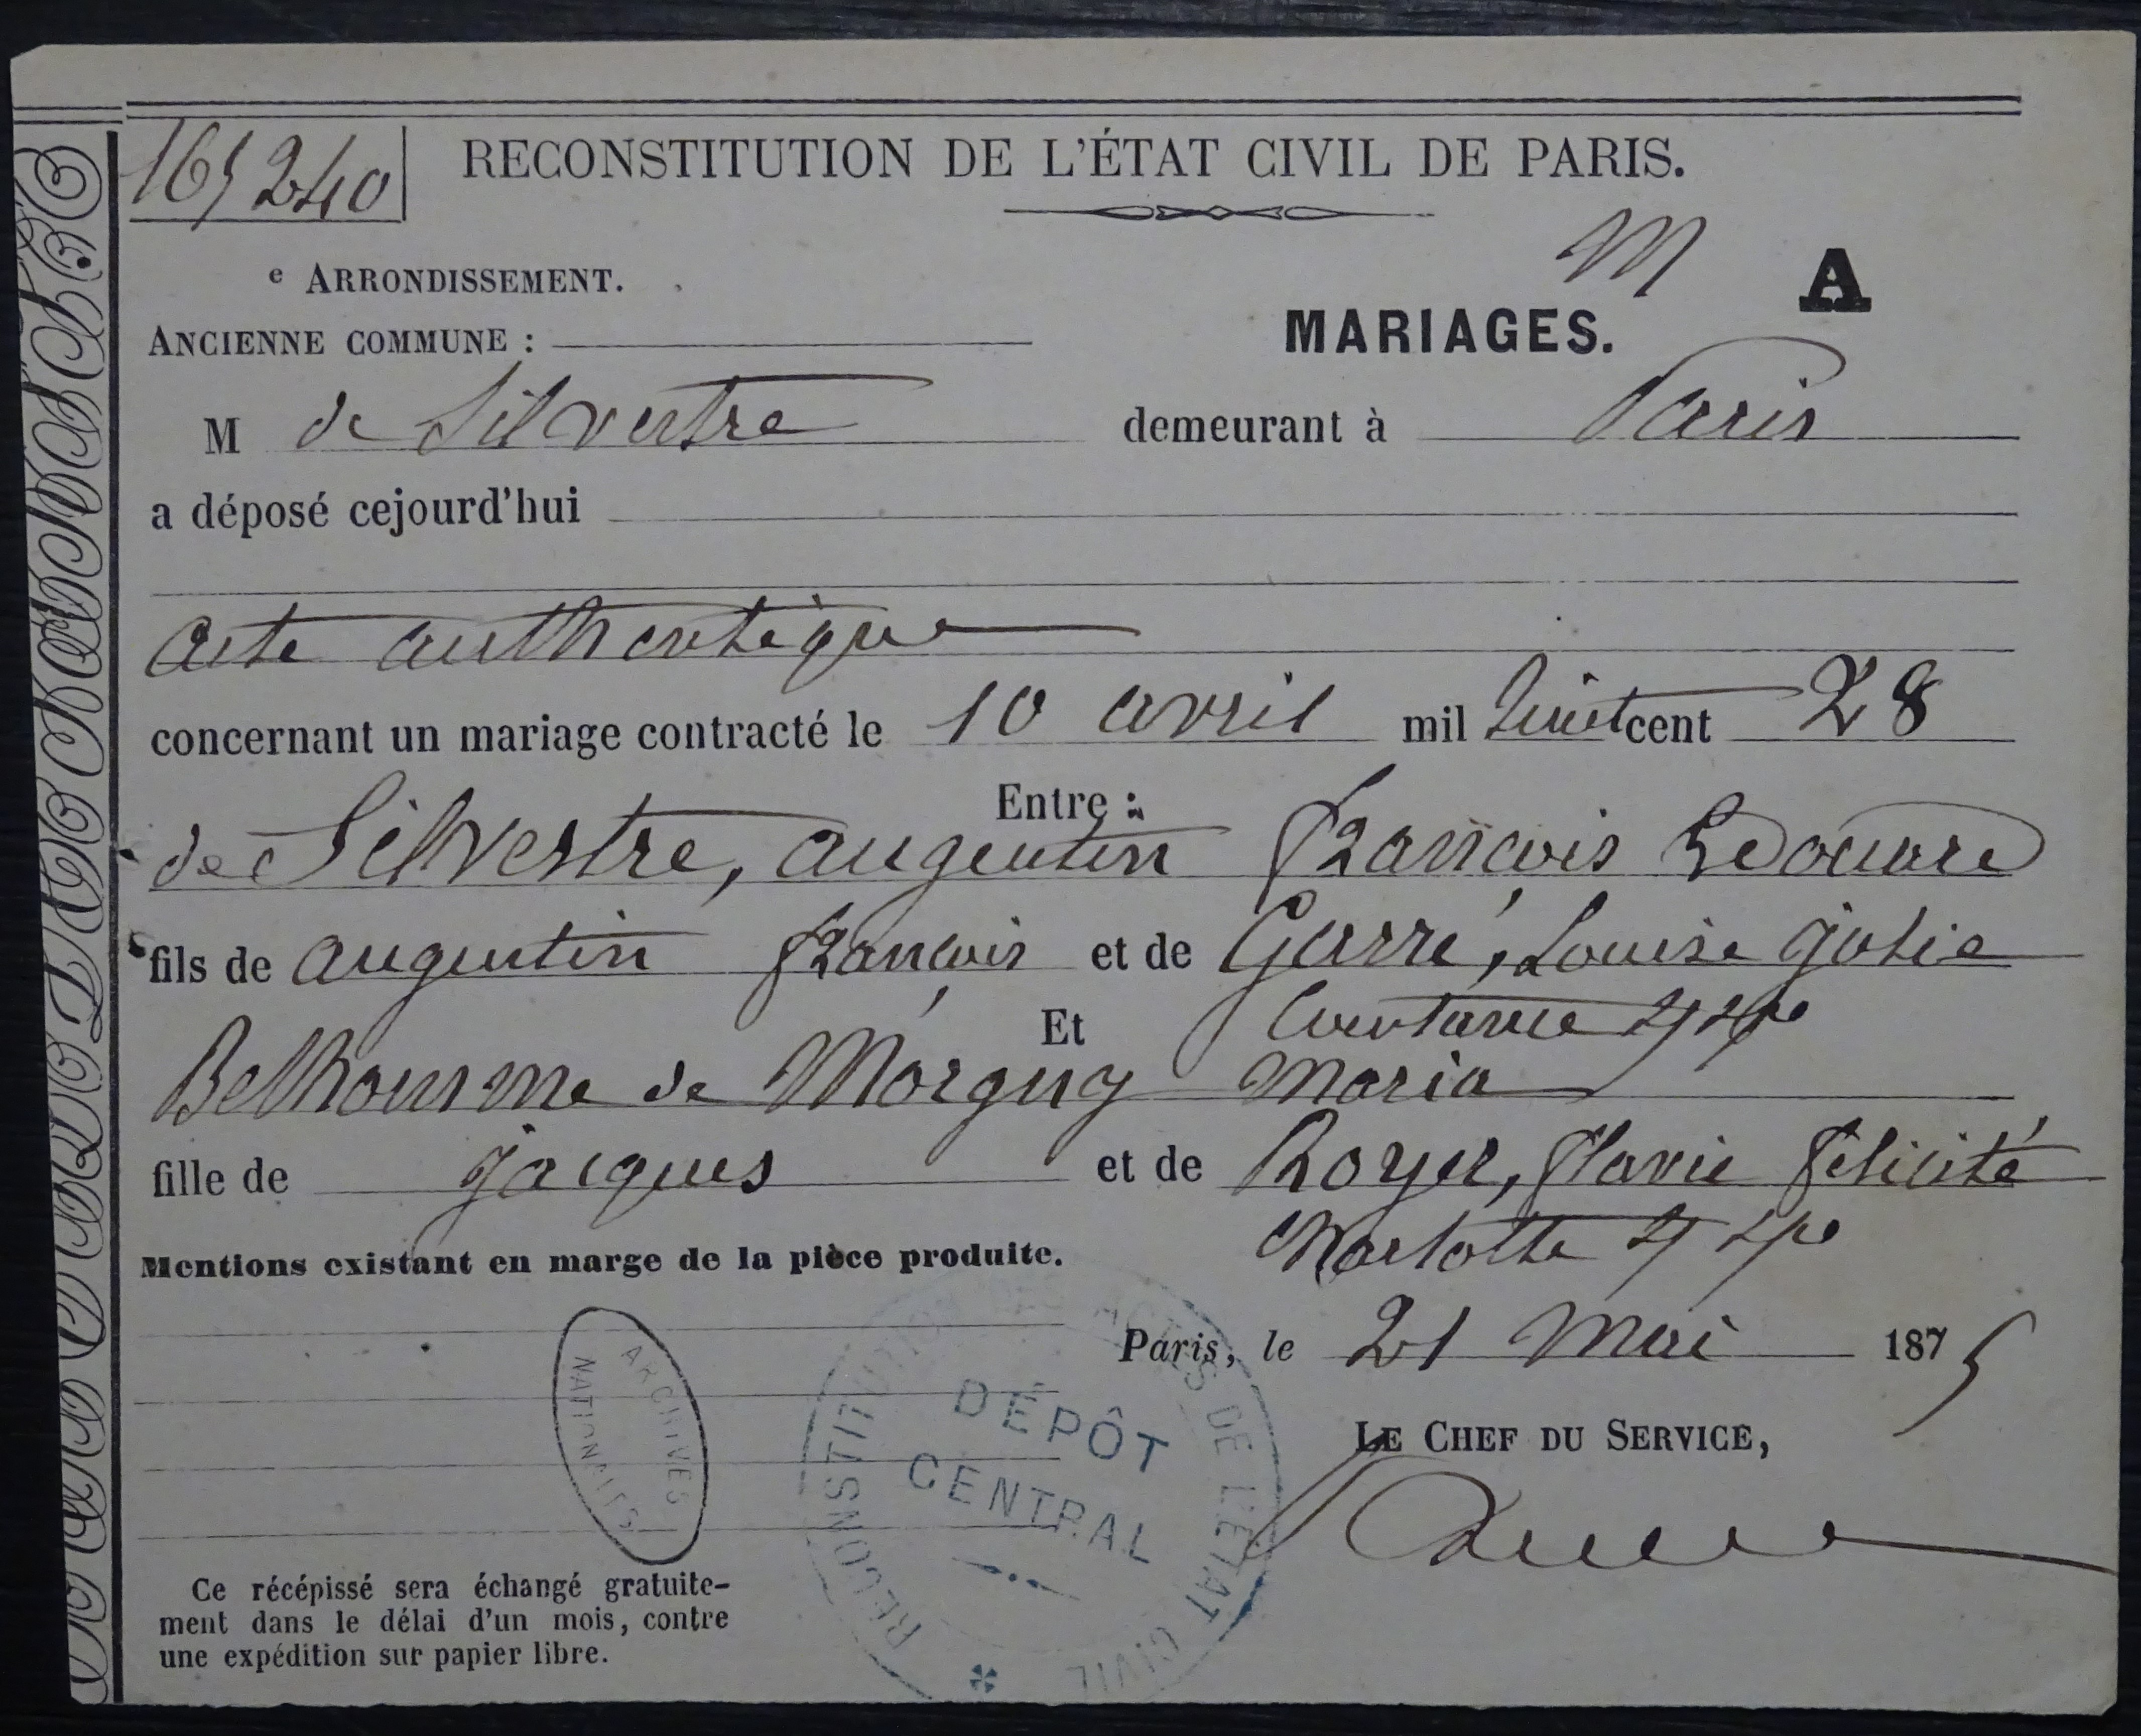 165240
RECONSTITUTION DE L'ÉTAT CIVIL DE PARIS.
M
A
e ARRONDISSEMENT.
MARIAGES.
ANCIENNE COMMUNE :
M de Silvestre demeurant à Paris
a déposé cejourd'hui
Acte authentique
concernant un mariage contracté le 10 avril mil huit cent 28
Entre :
de Silvestre, augustin françois Edouard
fils de augustin françois et de Garré, Louise Julie
Constance
Et
Belhomme de Morguy Maria
fille de Jacques et de Royer, flavie félicité
Charlotte
Mentions existant en marge de la pièce produite.
Paris, le 21 Mai 1875
LE CHEF DU SERVICE,
ARCHIVES
NATIONALES
RECONSTITUTION DES ACTES DE L'ÉTAT CIVIL
DÉPÔT
CENTRAL
Ce récépissé sera échangé gratuite-
ment dans le délai d'un mois, contre
une expédition sur papier libre.